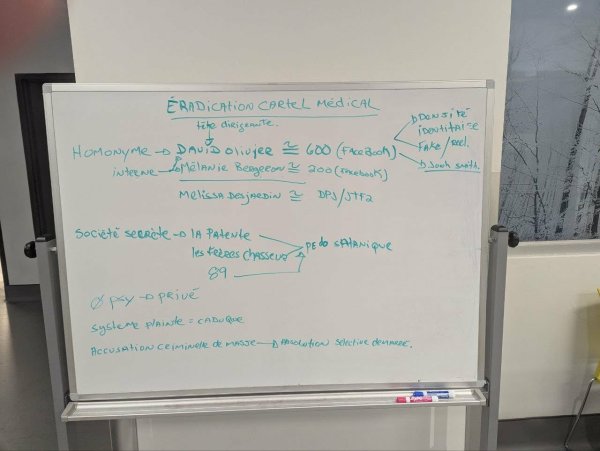 ÉRADICATION CARTEL MÉDICAL
tête dirigeante.
HOMONYME → DAVID olivier ≅ 600 (FACEBOOK)
DENSITÉ
identitaire
Fake/réel.
John Smith.
interne → Mélanie Bergeron ≅ 200 (Facebook)
Mélissa Desjardin ≅ DPJ/
Société secrète → LA Patente
les frères chasseurs
89
PEdo SAtANique
Ø psy → PRIVÉ
système plainte = CADUQUE
Accusation criminelle de masse → Absolution sélective